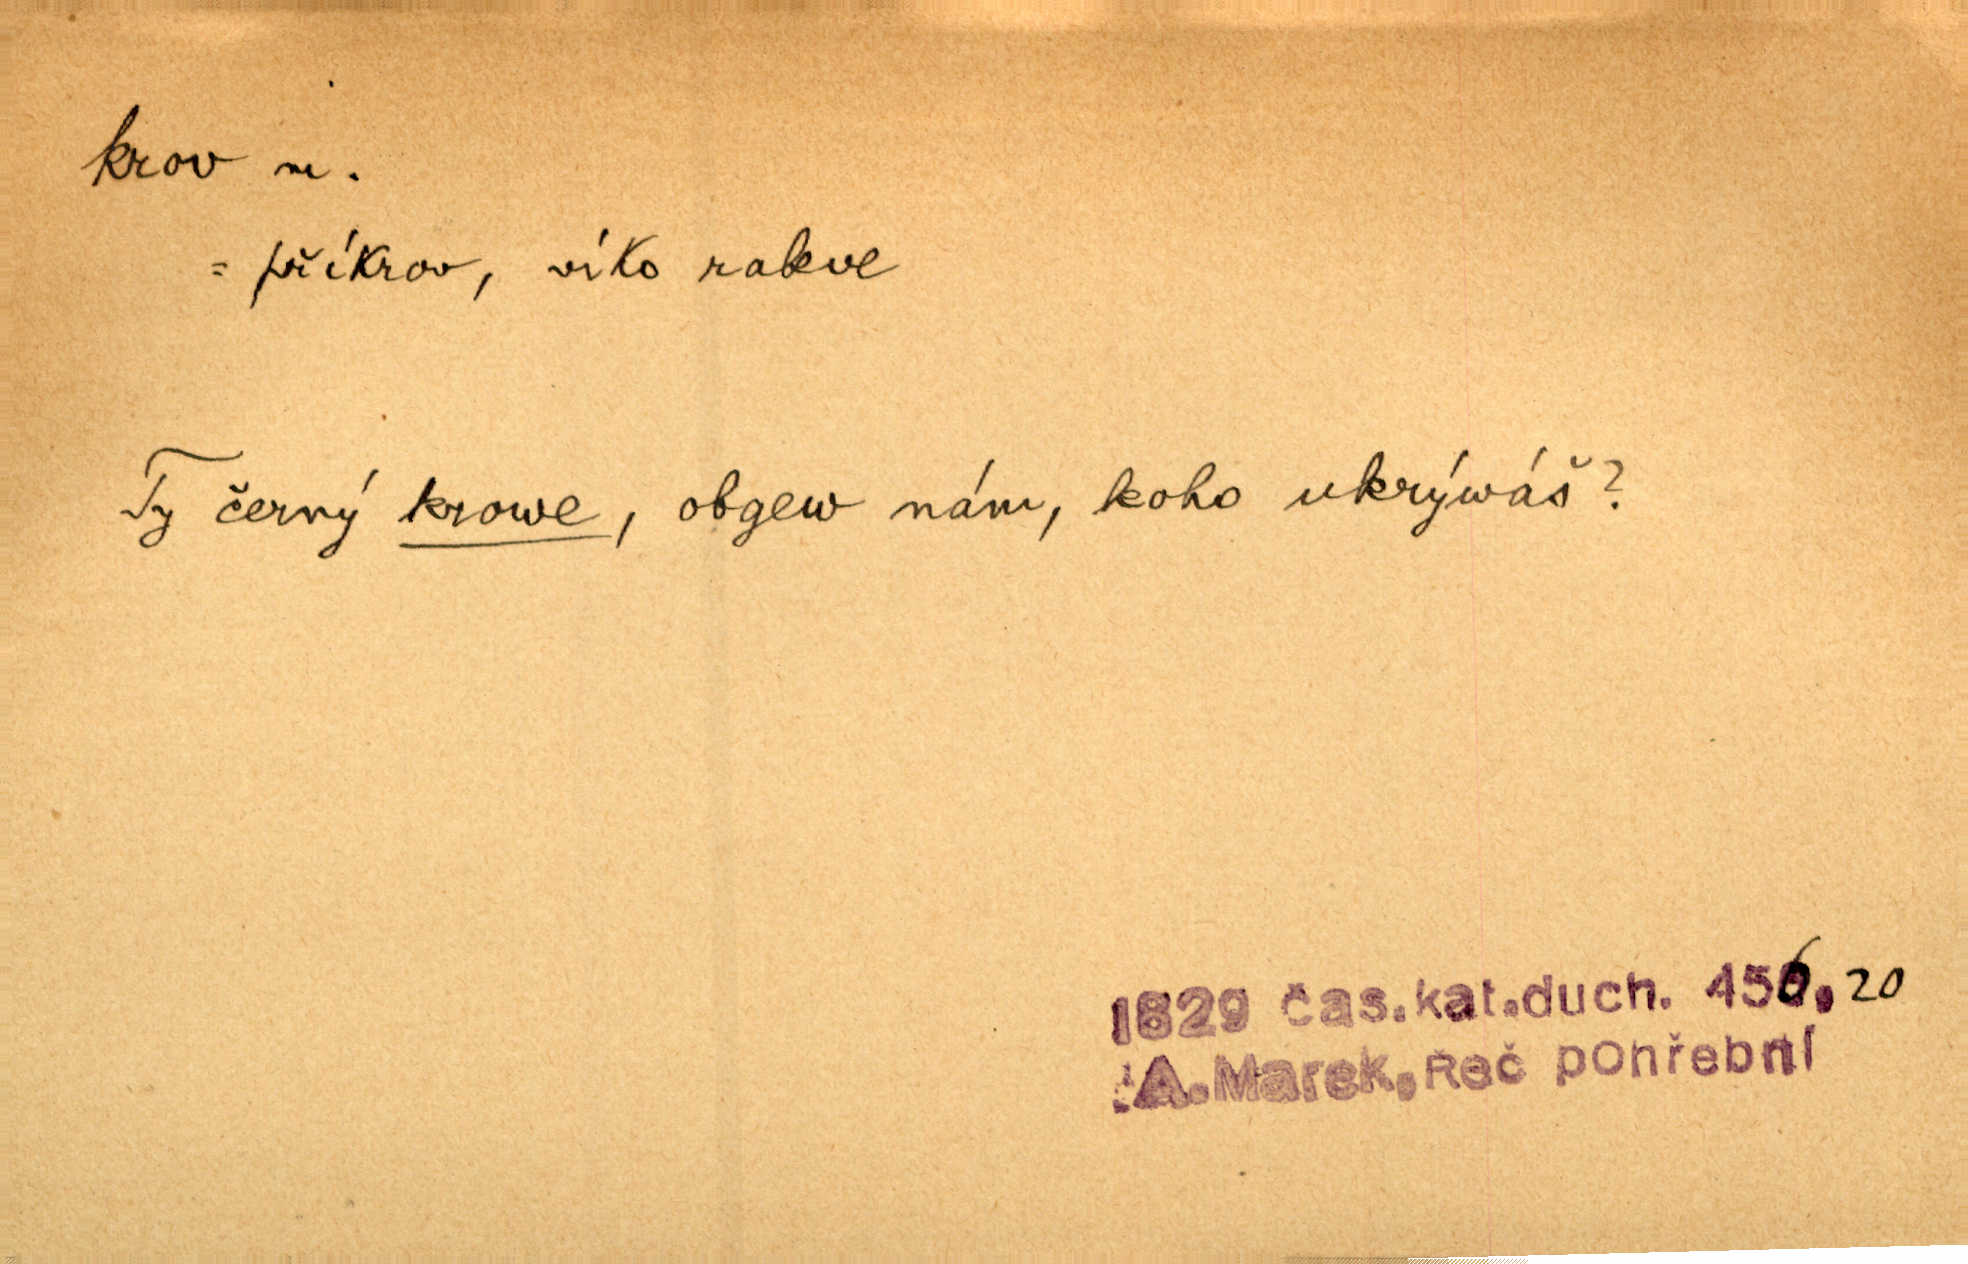 krov m.
= příkrov, víko rakve
Ty černý krowe, obgew nám, koho ukrýwáš?
1829 čas.kat.duch. 456, 20
A.Marek,Řeč pohřební